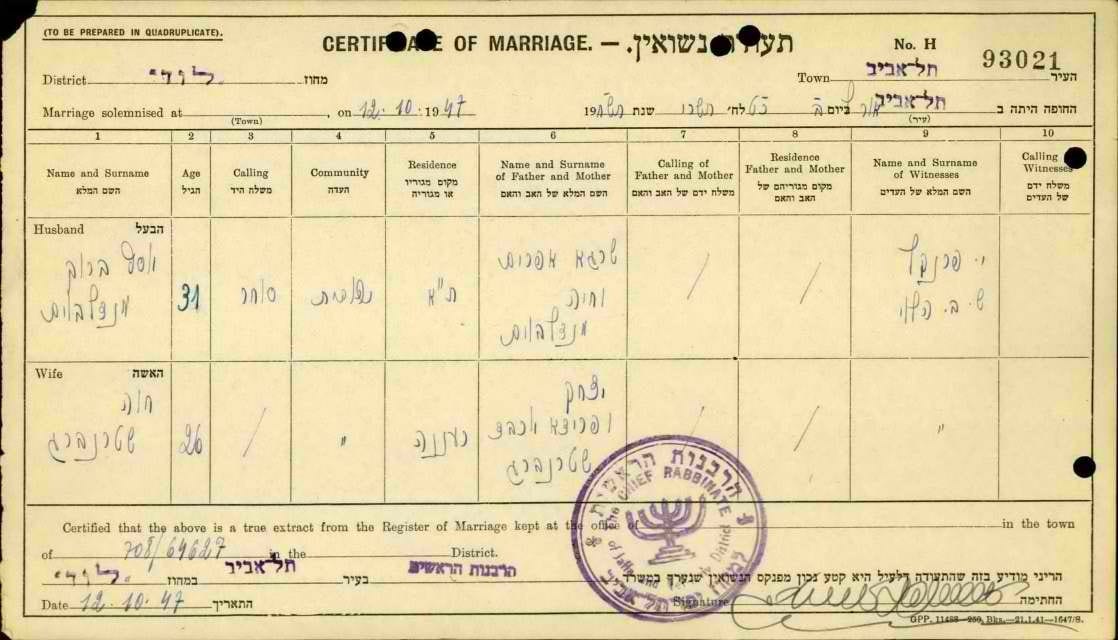 (TO BE PREPARED IN QUADRUPLICATE).
CERTIFICATE OF MARRIAGE. — תעודת נשואין.
No. H 93021
District לודי מחוז
Town תל-אביב העיר
Marriage solemnised at , on 12.10.1947
החופה היתה ב תל-אביב ביום לח' תשרי שנת
(Town) (עיר)
1 2 3 4 5 6 7 8 9 10
Name and Surname Age Calling Community Residence Name and Surname of Father and Mother Calling of Father and Mother Residence Father and Mother Name and Surname of Witnesses Calling Witnesses
השם המלא הגיל משלח היד העדה מקום מגוריו או מגוריה השם המלא של האב והאם משלח ידם של האב והאם מקום מגוריהם של האב והאם השם המלא של העדים משלח ידם של העדים
Husband הבעל
יוסף ברוך
מנדלבוים
31
סוחר
ת"א
שרגא אפרים
וחיה
מנדלבוים
י. פרנקל
ש. ב. הלוי
Wife האשה
חוה
שטרנברג
26
"
רעננה
יצחק
שטרנברג
"
הרבנות הראשית
THE CHIEF RABBINATE
of Jaffa and Tel Aviv District
Certified that the above is a true extract from the Register of Marriage kept at the office of in the town
of 708/69627 in the District.
הריני מודיע בזה שהתעודה דלעיל היא קטע נכון מפנקס הנשואין שנערך במשרד הרבנות הראשית בעיר תל-אביב במחוז לודי
Date 12.10.47 התאריך
Signature החתימה
GPP. 11488—250 Bks.—21.1.41—1647/S.